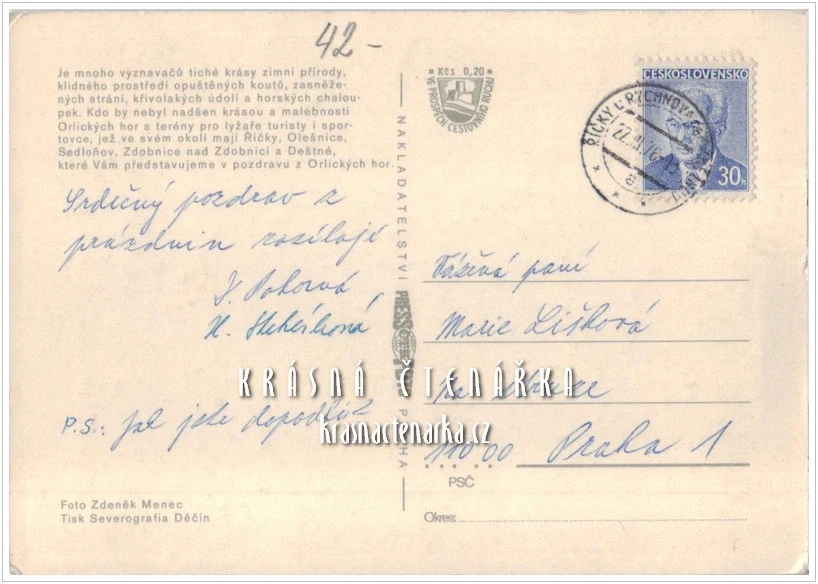 42-
Je mnoho vyznavačů tiché krásy zimní přírody,
klidného prostředí opuštěných koutů, zasněže-
ných strání, křivolakých údolí a horských chalou-
pek. Kdo by nebyl nadšen krásou a malebností
Orlických hor s terény pro lyžaře turisty i spor-
tovce, jež ve svém okolí mají Říčky, Olešnice,
Sedloňov, Zdobnice nad Zdobnicí a Deštné,
které Vám představujeme v pozdravu z Orlických hor.
Srdečný pozdrav z
prázdnin zasílají
Pokorná
P.S.: Jak jste dopadli?
Foto Zdeněk Menec
Tisk Severografia Děčín
NAKLADATELSTVÍ PRESSFOTO PRAHA
Kčs 0,20
VE PROSPĚCH CESTOVNÍHO RUCHU
ČESKOSLOVENSKO
30h
ŘÍČKY
Vážená paní
Marie Lišková
110 00 Praha 1
PSČ
Okres:
KRÁSNÁ ČTENÁŘKA
krasnactenarka.cz